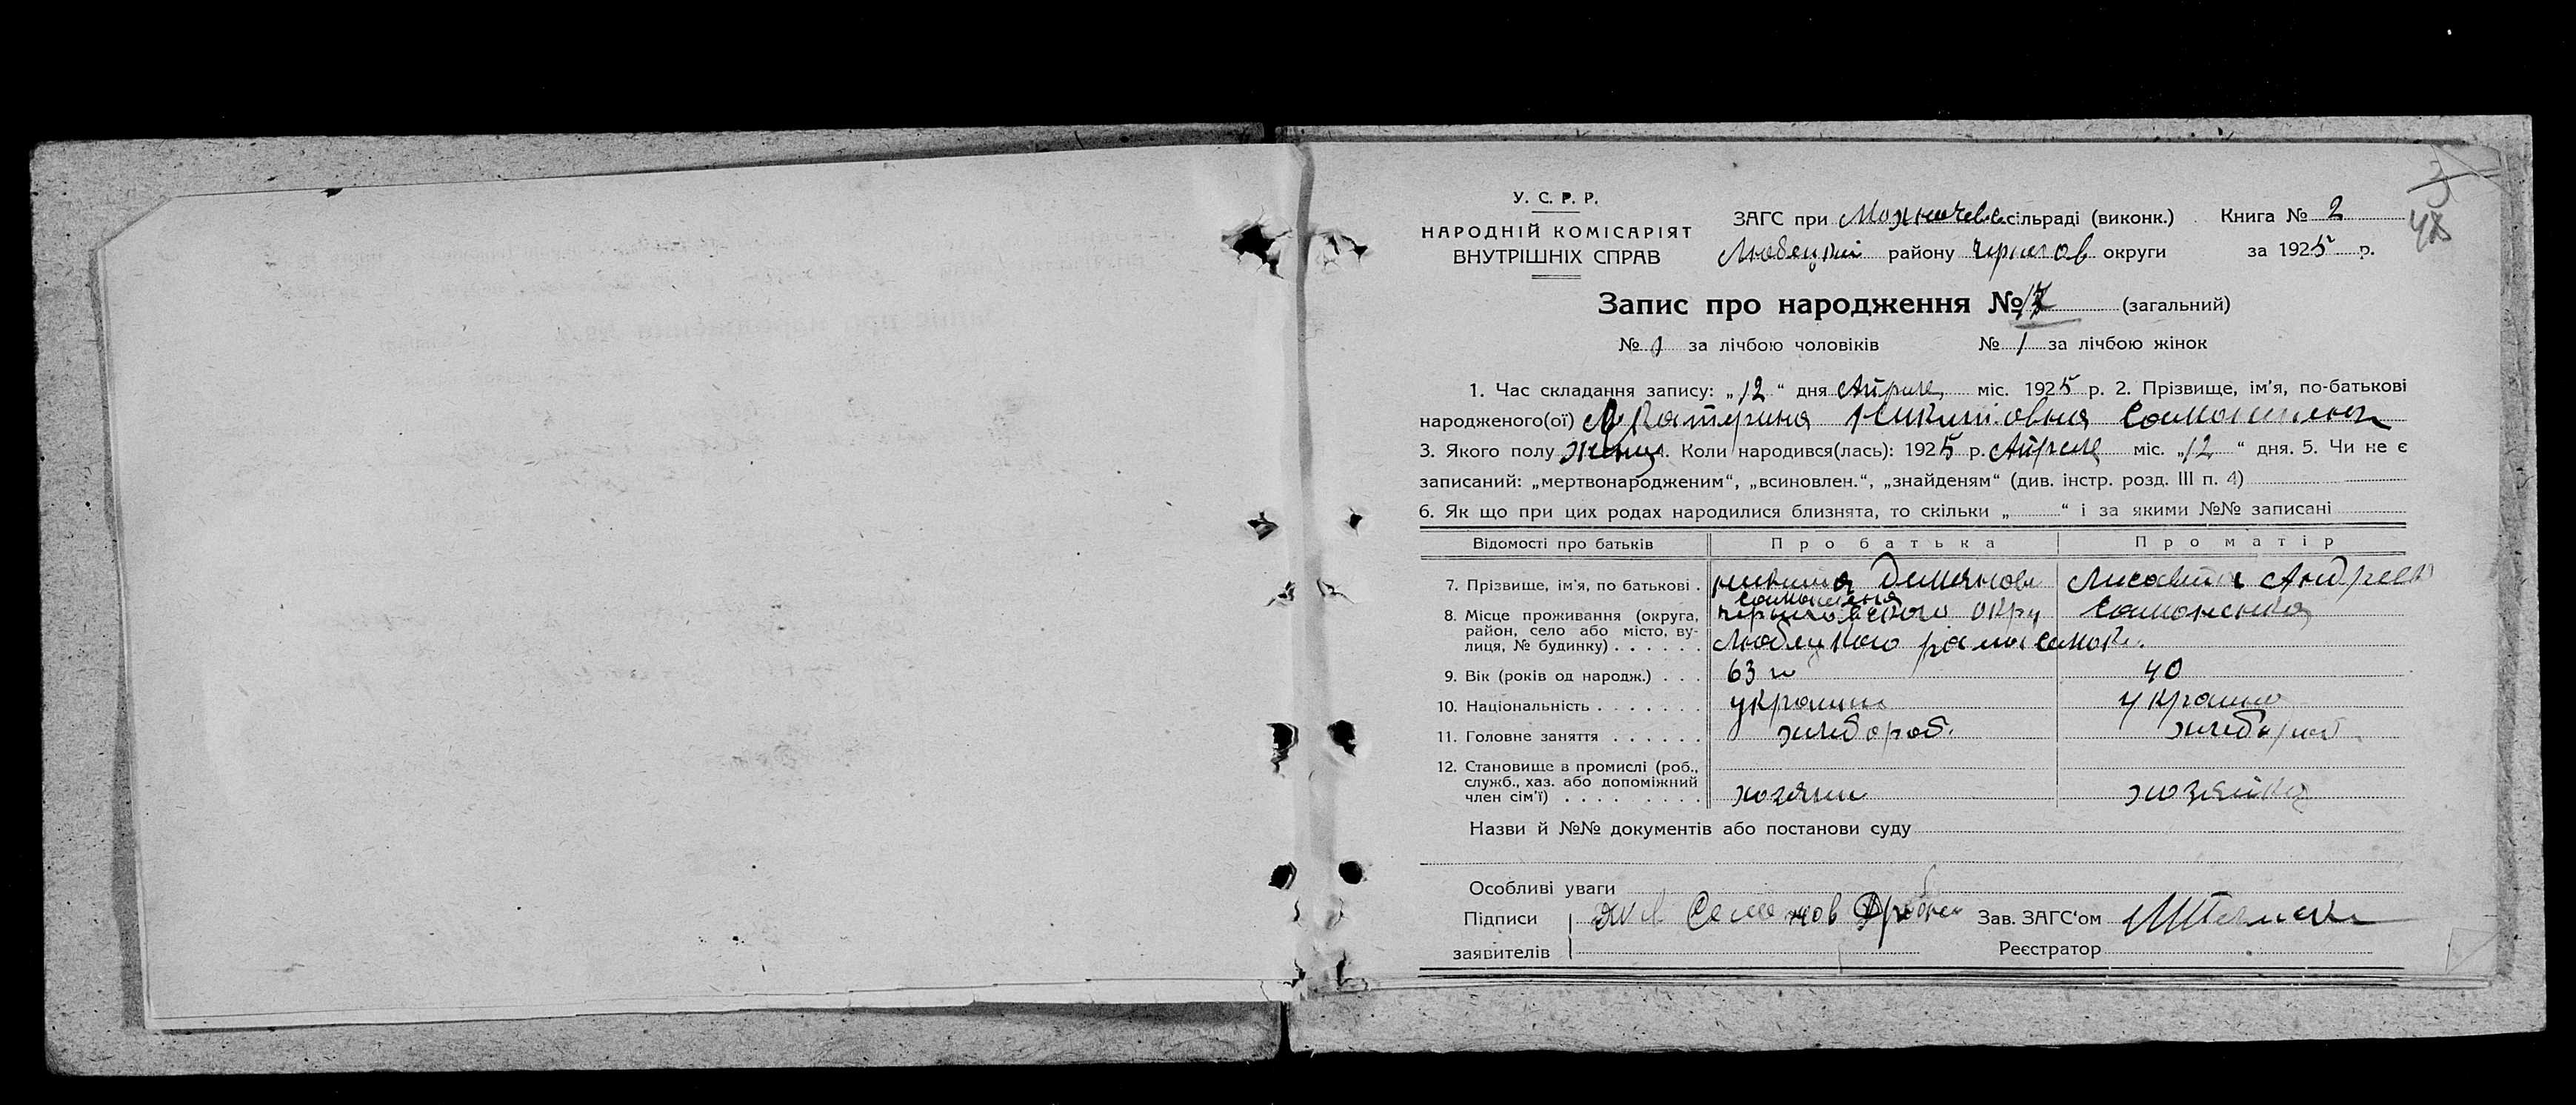 У. С. Р. Р.
НАРОДНІЙ КОМІСАРІЯТ
ВНУТРІШНІХ СПРАВ
ЗАГС при сільраді (виконк.) Книга № 2
Любецкий району Чернигов округи за 1925 р.
48
Запис про народження № (загальний)
№ 1 за лічбою чоловіків № 1 за лічбою жінок
1. Час складання запису: „12“ дня Апреля міс. 1925 р. 2. Прізвище, ім'я, по-батькові
народженого(ої) Катерина Никитовна
3. Якого полу 4. Коли народився(лась): 1925 р. Апреля міс. „12“ дня. 5. Чи не є
записаний: „мертвонародженим“, „всиновлен.“, „знайденям“ (див. інстр. розд. III п. 4)
6. Як що при цих родах народилися близнята, то скільки „ “ і за якими №№ записані
Відомості про батьків Про батька Про матір
7. Прізвище, ім'я, по батькові . Никита Демянов
8. Місце проживання (округа, район, село або місто, вулиця, № будинку) . . . . . . Черниговского окру
Любецкого
9. Вік (років од народж.) . . . 63 40
10. Національність . . . . . . . украин украин
11. Головне заняття . . . . . . хлебороб. хлебороб
12. Становище в промислі (роб., служб., хаз. або допоміжний член сім'ї) . . . . . . . . хозяин хозяйка
Назви й №№ документів або постанови суду
Особливі уваги
Підписи заявителів
Зав. ЗАГС'ом
Реєстратор